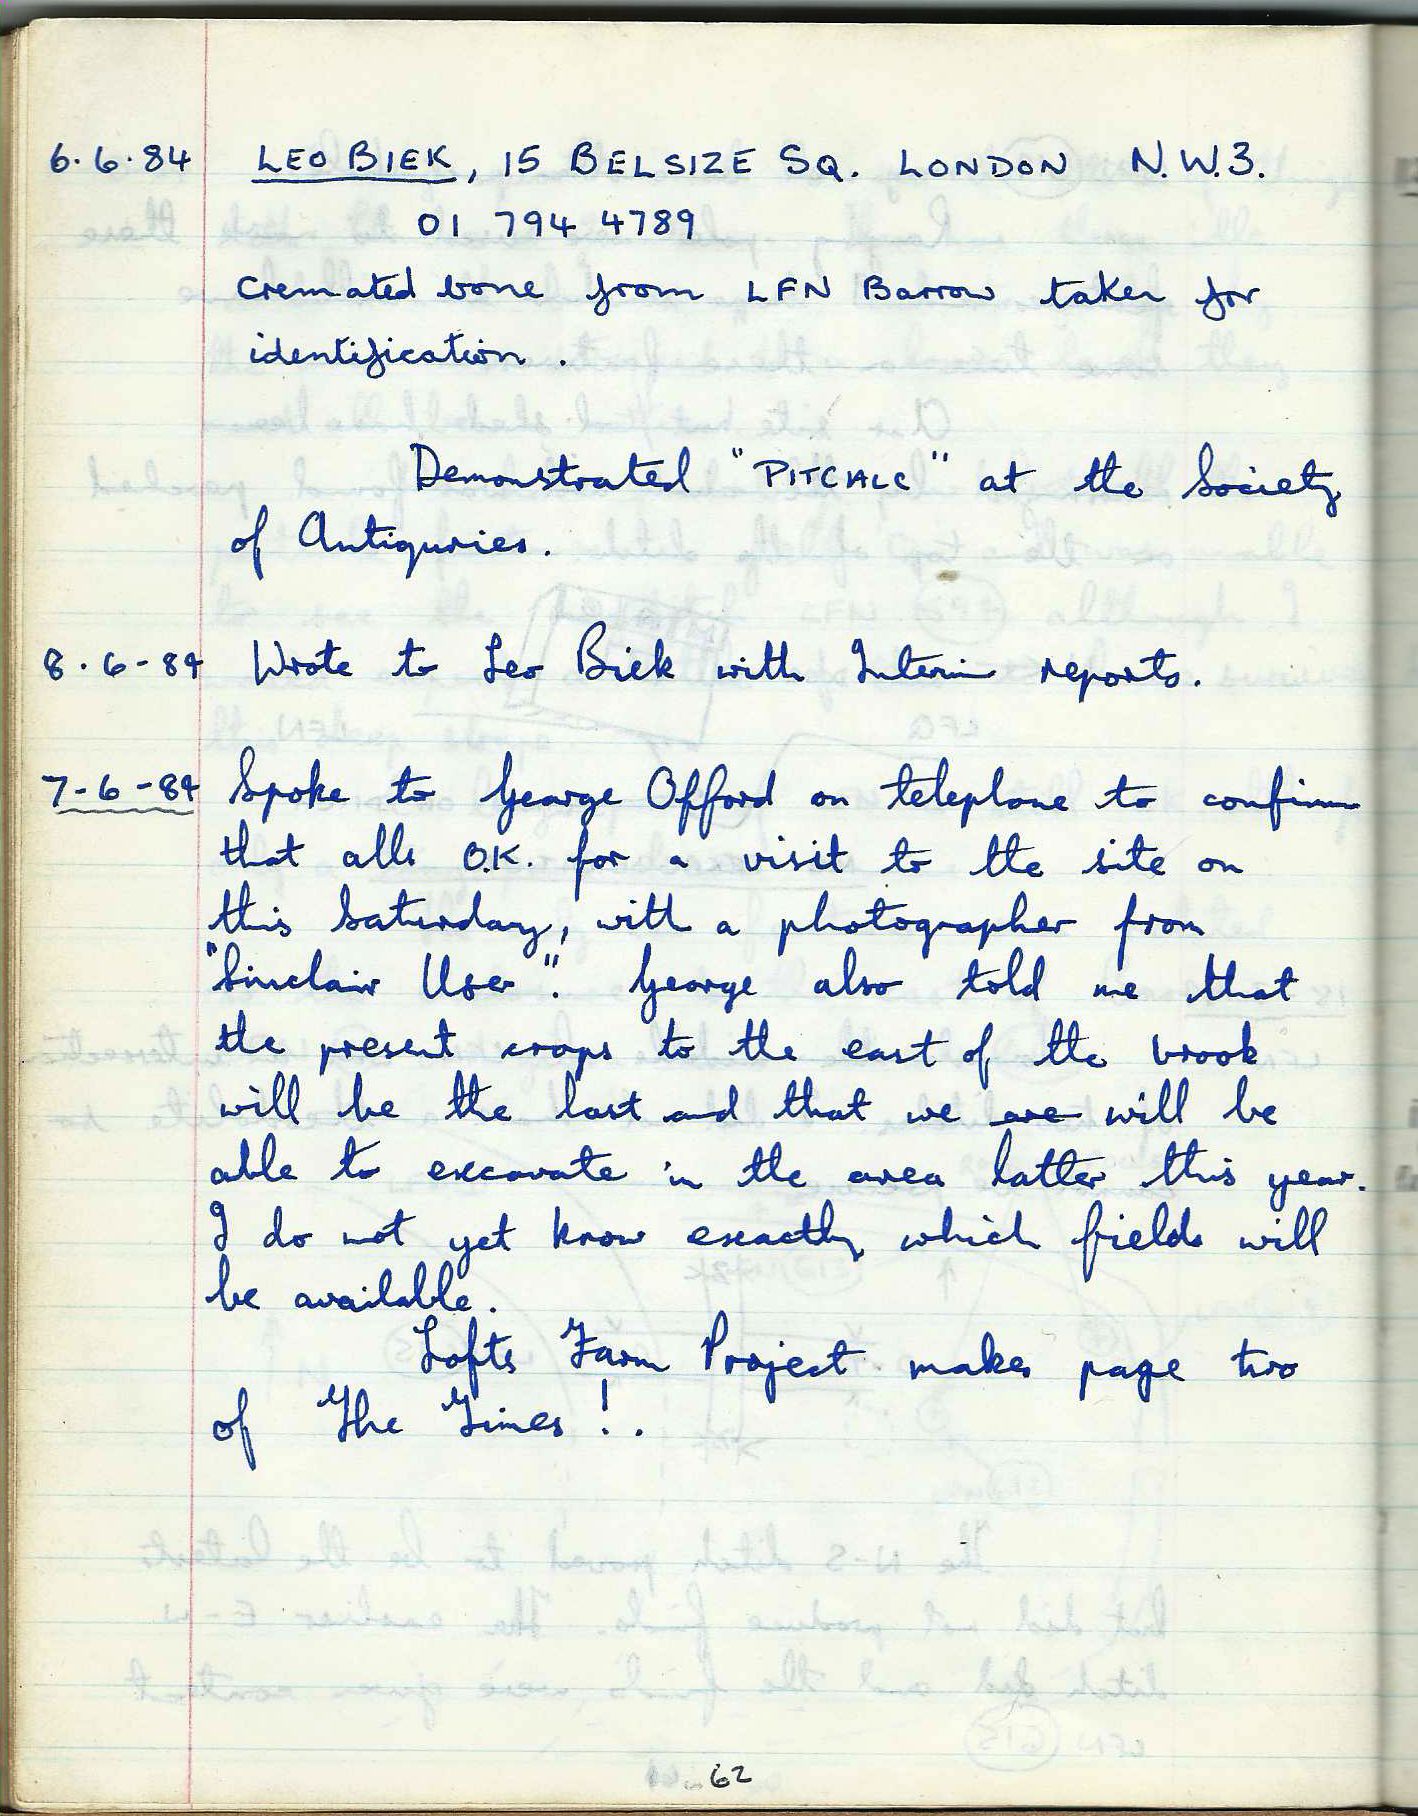 6.6.84 LEO BIEK, 15 BELSIZE SQ. LONDON N.W.3.
01 794 4789
cremated bone from LFN Barrow taken for
identification.
Demonstrated "PITCALC" at the Society
of Antiquries.
8.6-84 Wrote to Leo Biek with Interim reports.
7-6-84 Spoke to George Offord on telephone to confirm
that alls O.K. for a visit to the site on
this Saturday, with a photographer from
"Sinclair User". George also told me that
the present crops to the east of the brook
will be the last and that we are will be
able to excavate in the area latter this year.
I do not yet know exactly which fields will
be available.
Lofts Farm Project makes page two
of The Times!.
62